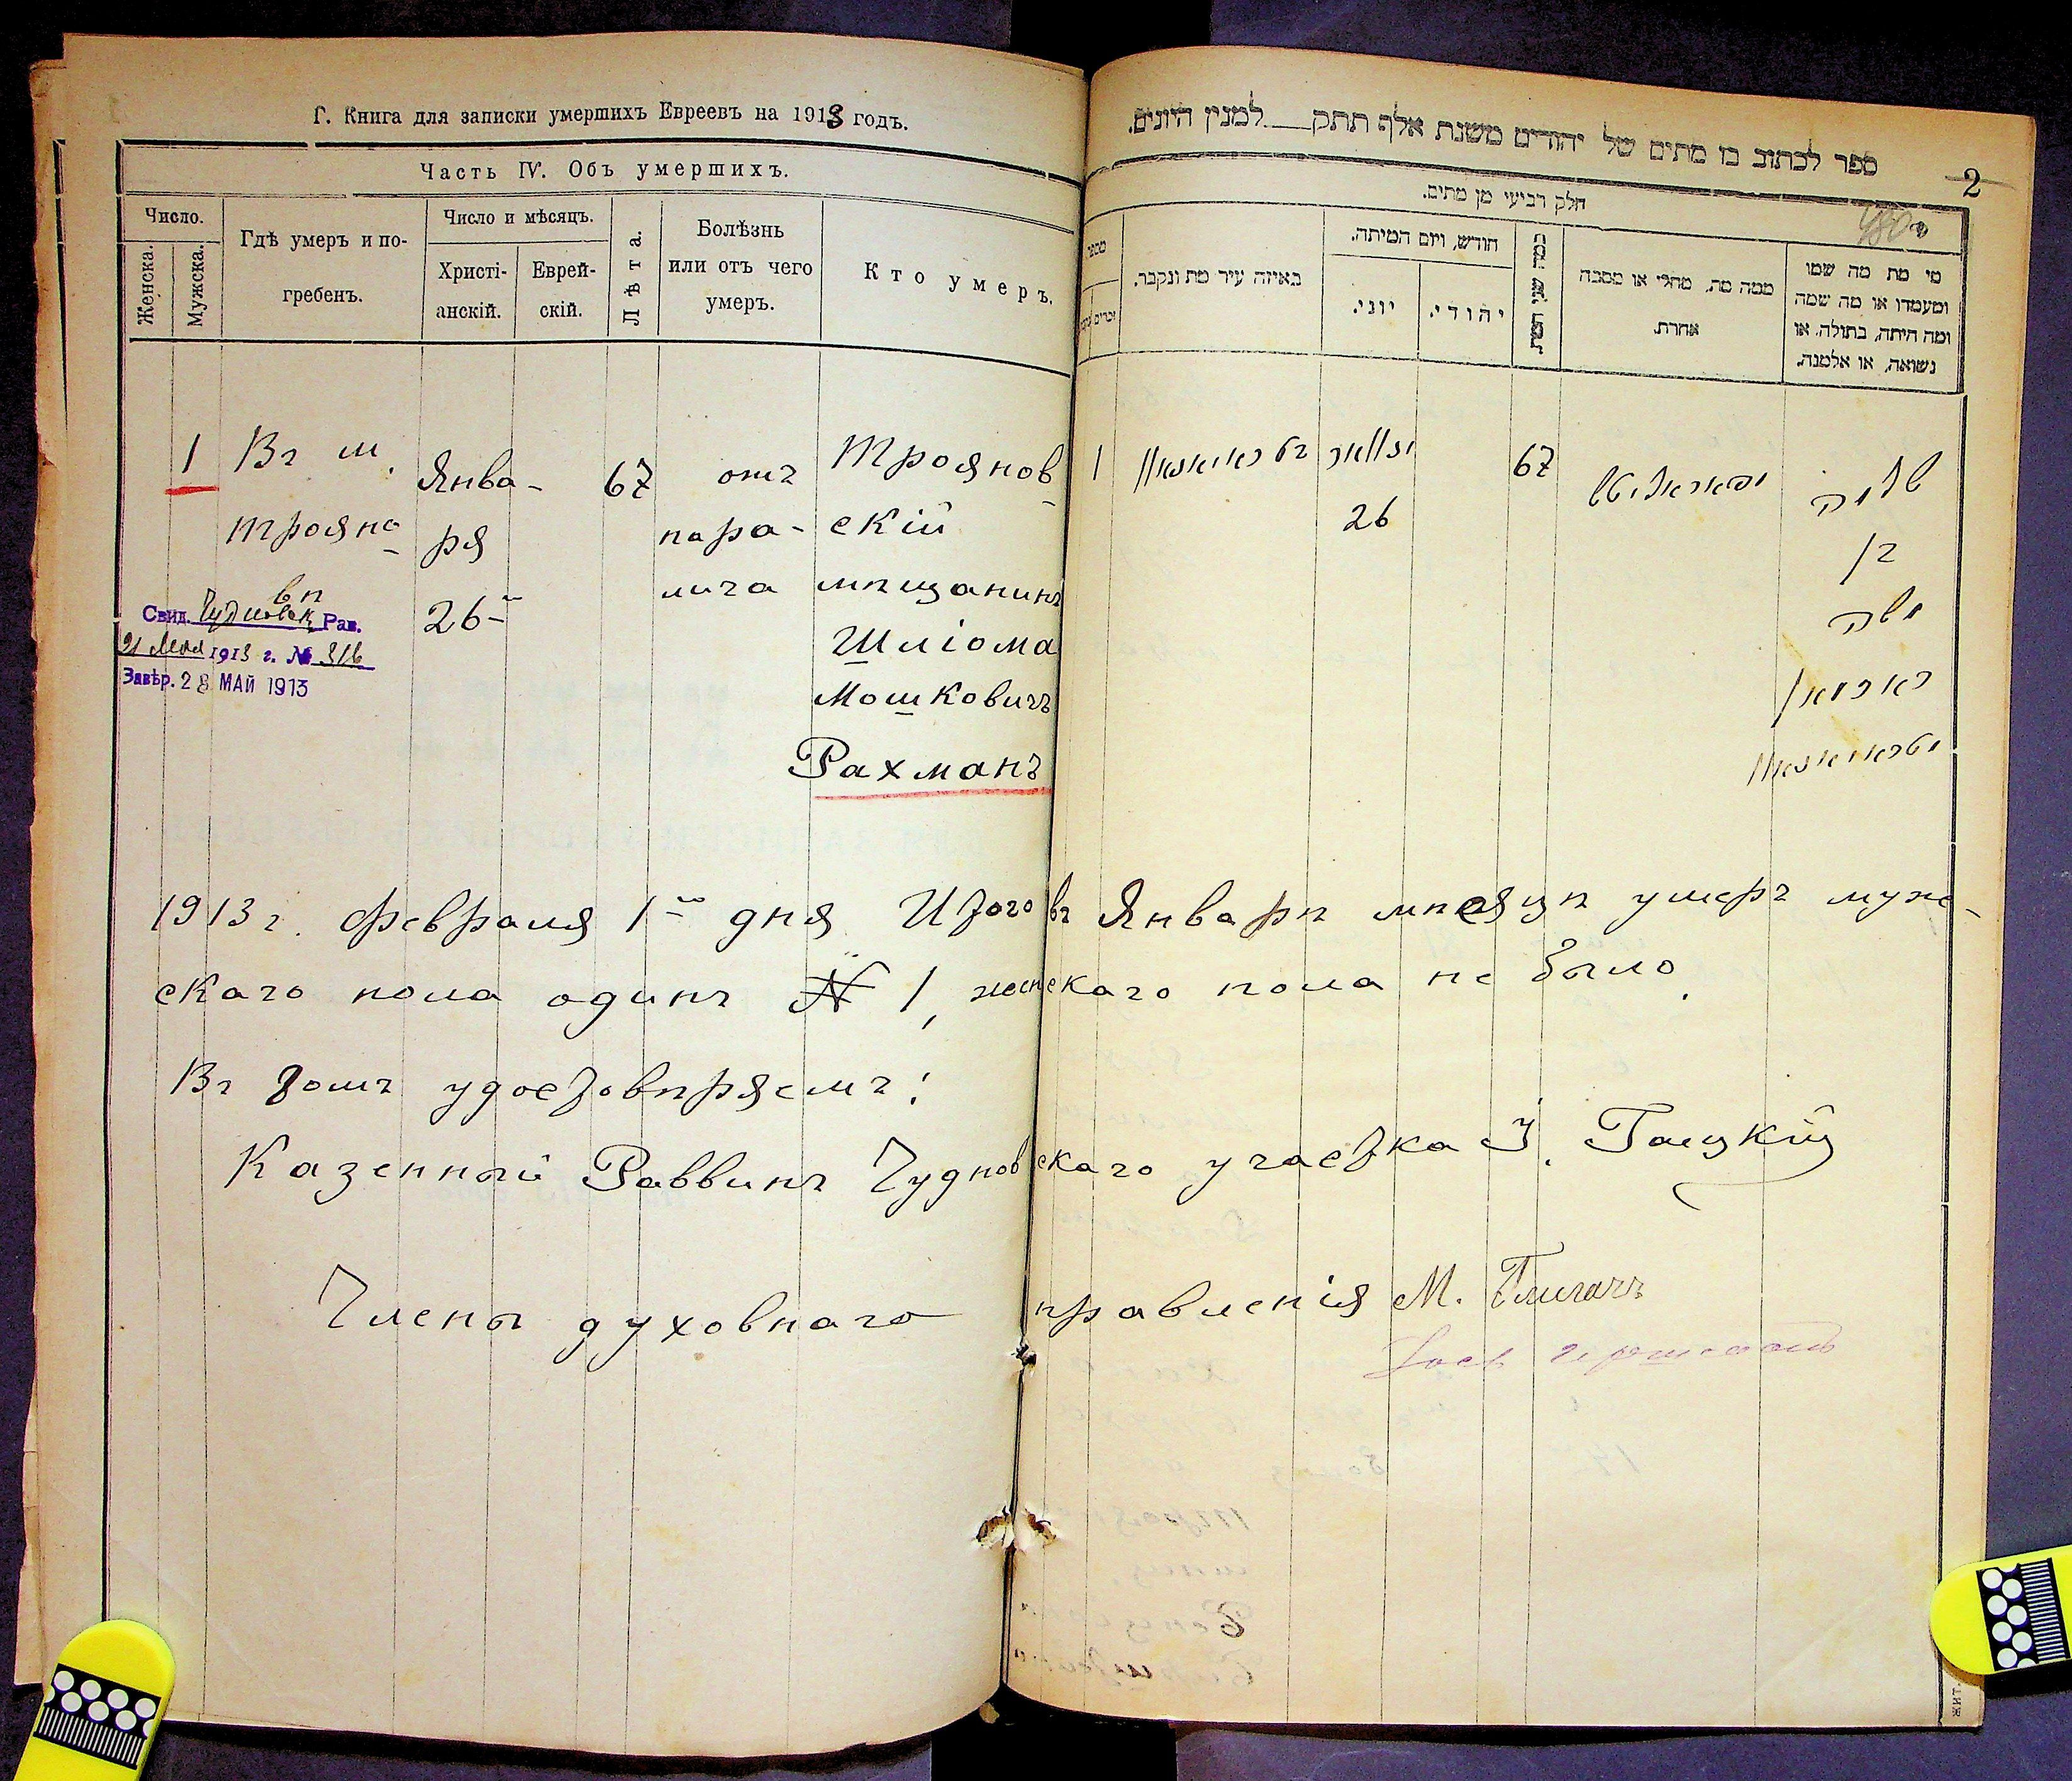 Г. Книга для записки умершихъ Евреевъ на 1913 годъ.
Часть IV. Объ умершихъ.
Число.
Женска.
Мужска.
Гдѣ умеръ и по-
гребенъ.
Число и мѣсяцъ.
Христі-
анскій.
Еврей-
скій.
Лѣта.
Болѣзнь
или отъ чего
умеръ.
Кто умеръ.
1
Въ м.
Трояно
вѣ
Янва-
ря
26
67
отъ
пара-
лича
Трояновскій
мѣщанинъ
Шліома
Мошковичъ
Рахманъ
Свид. Чудновск. Рав.
21 Мая 1913 г. № 316
Завѣр. 28 МАЙ 1913
ספר לכתוב בו מתים של יהודים משנת אלף תתק למנין היונים.
2
חלק רביעי מן מתים.
מספר
זכרים
באיזה עיר מת ונקבר.
חודש, ויום המיתה.
יוני.
יהודי.
כמה שני המת
ממה מת, מחלי או מסבה
אחרת.
מי מת מה שמו
ומעמדו או מה שמה
ומה היתה, בתולה, או
נשואה, או אלמנה.
1
יאנואר
26
67
שלמה
בן
משה
ראכמאן
1913 г. февраля 1го дня Итого въ Январѣ мѣсяцѣ умеръ муже-
скаго пола одинъ № 1, женскаго пола не было.
Въ томъ удостовѣряемъ:
Казенный Раввинъ Чудновскаго участка І. Гацкій
Члены духовнаго правленія М.